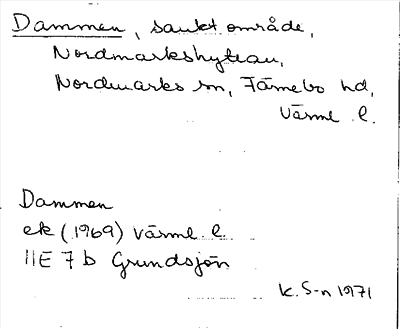 Dammen, sankt område,
Nordmarkshyttan,
Nordmarks sn, Färnebo hd,
Värml. l.
Dammen
ek (1969) Värml. l.
11E 7b Grundsjön
K. S-n 1971